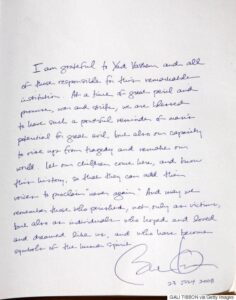 I am grateful to Yad Vashem and all
of those responsible for this remarkable
institution. At a time of great peril and
promise, war and strife, we are blessed
to have such a powerful reminder of man's
potential for great evil, but also our capacity
to rise up from tragedy and remake our
world. Let our children come here, and know
this history, so that they can add their
voices to proclaim "never again." And may we
remember those who perished, not only as victims,
but also as individuals who hoped and loved
and dreamed like us, and who have become
symbols of the human spirit.
23 July 2008
GALI TIBBON via Getty Images